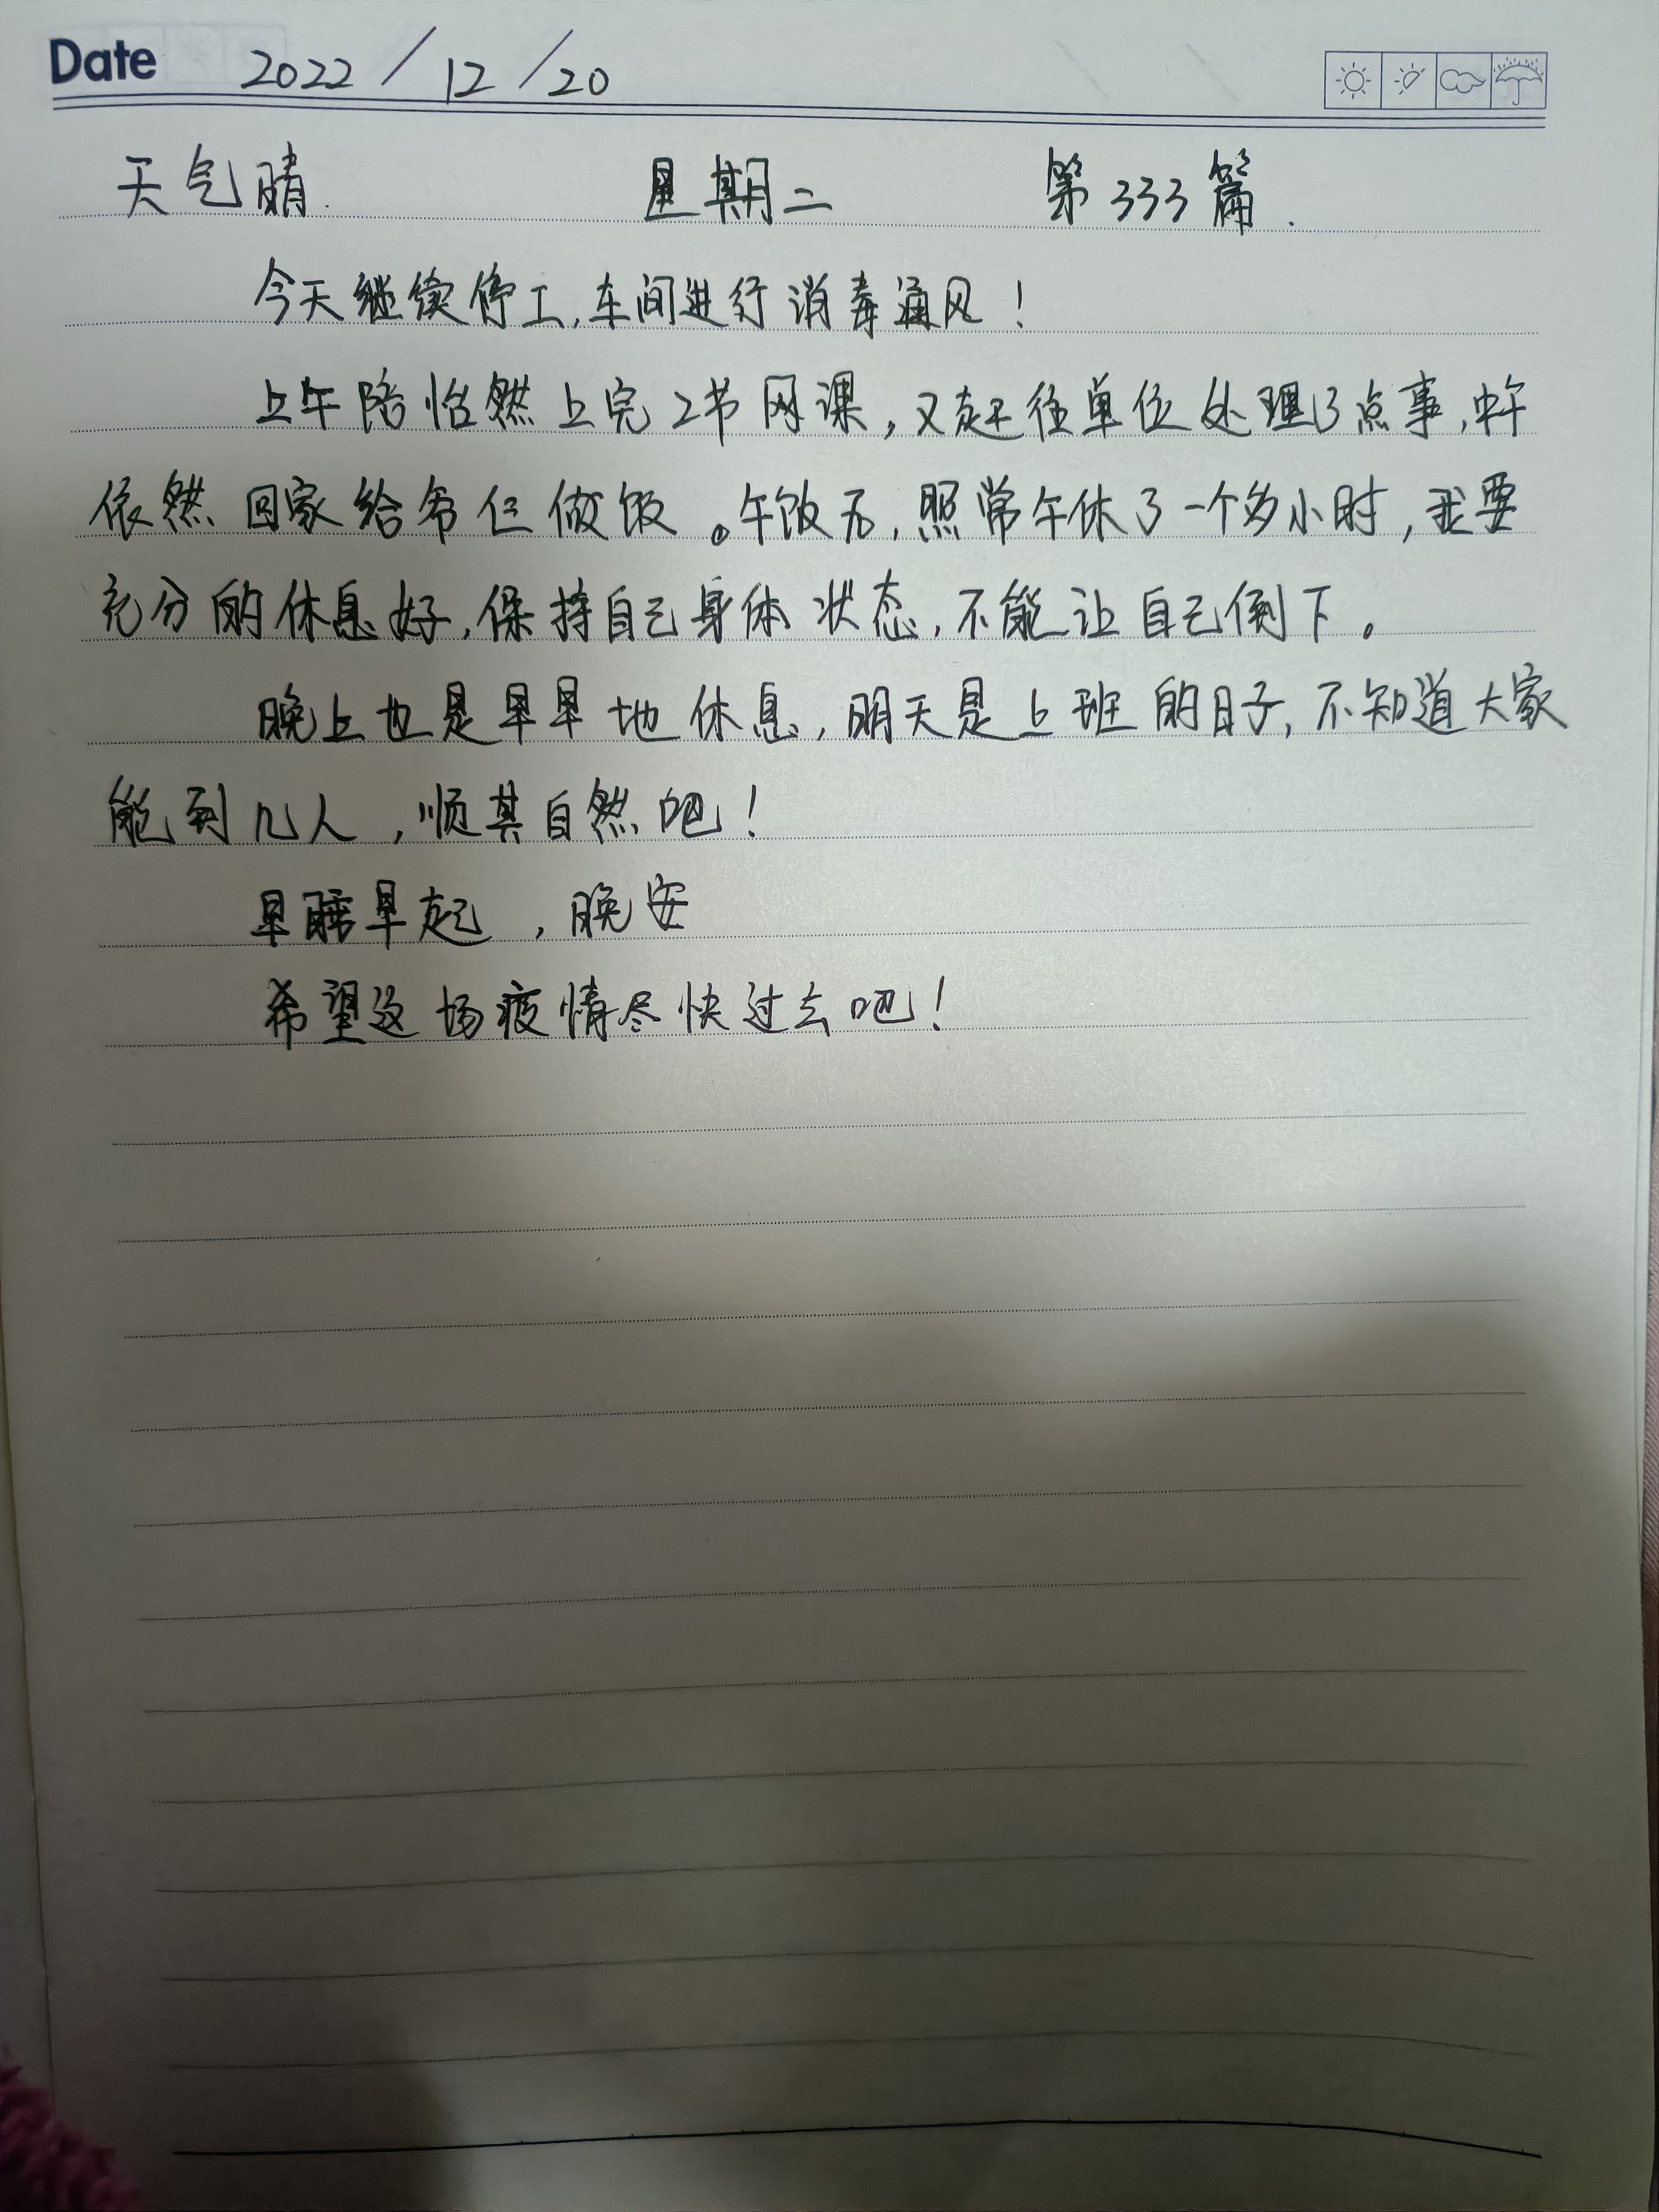 Date 2022/12/20
天气晴. 星期二 第333篇.
今天继续停工,车间进行消毒通风!
上午陪怡然上完2节网课,又赶往单位处理了点事,中午
依然回家给爷仨做饭。午饭后,照常午休了一个多小时,我要
充分的休息好,保持自己身体状态,不能让自己倒下。
晚上也是早早地休息,明天是上班的日子,不知道大家
能到几人,顺其自然吧!
早睡早起,晚安
希望这场疫情尽快过去吧!